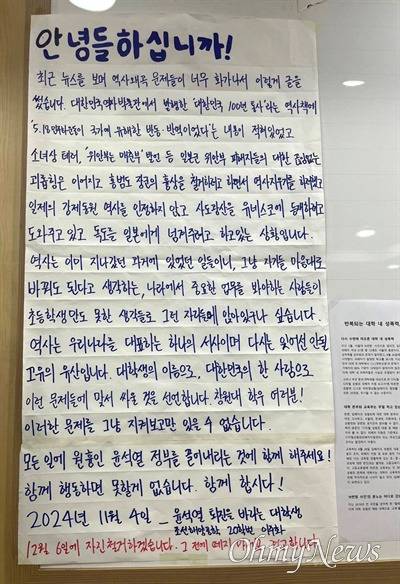 안녕들하십니까!
최근 뉴스를 보며 역사왜곡 문제들이 너무 화가나서 이렇게 글을
썼습니다. 대한민국역사박물관에서 발행한 '대한민국 역사책에
'5.18 국가에 유해한 행동, 반역이었다'는 내용이 적혀있었고
소녀상 테러, '위안부는 매춘부' 발언 등 일본군 위안부 피해자들의 대한 끊임없는
괴롭힘은 이어지고 홍범도 장군의 흉상을 철거하려고 하면서 역사지우기를 하려했고
일제의 강제동원 역사를 인정하지 않고 사도광산을 유네스코에 등재하려고
도와주고 있고 독도를 일본에게 넘겨주려고 하고있는 상황입니다.
역사는 이미 지나갔던 과거에 있었던 일들이니, 그냥 자기들 마음대로
바꿔도 된다고 생각하는, 나라에서 중요한 업무를 봐야하는 사람들이
초등학생만도 못한 생각들로 그런 자리에 앉아있구나 싶습니다.
역사는 우리나라를 대표하는 하나의 서사이며 다시는 잊어선 안될
고유의 유산입니다. 대학생의 이름으로, 대한민국의 한 사람으로
이런 문제들에 맞서 싸울 것을 선언합니다. 창원대 학우 여러분!
이러한 문제를 그냥 지켜보고만 있을 수 없습니다.
모든 일에 원흉인 윤석열 정부를 끌어내리는 것에 함께 해주세요!
함께 행동하면 못할게 없습니다. 함께 합시다!
2024년 11월 4일 _ 윤석열 퇴진을 바라는 대학생
조선해양공학 20학번
12월 6일에 자진철거하겠습니다. 그 전에 떼지
OhmyNews
반복되는 대학 내 성폭력,